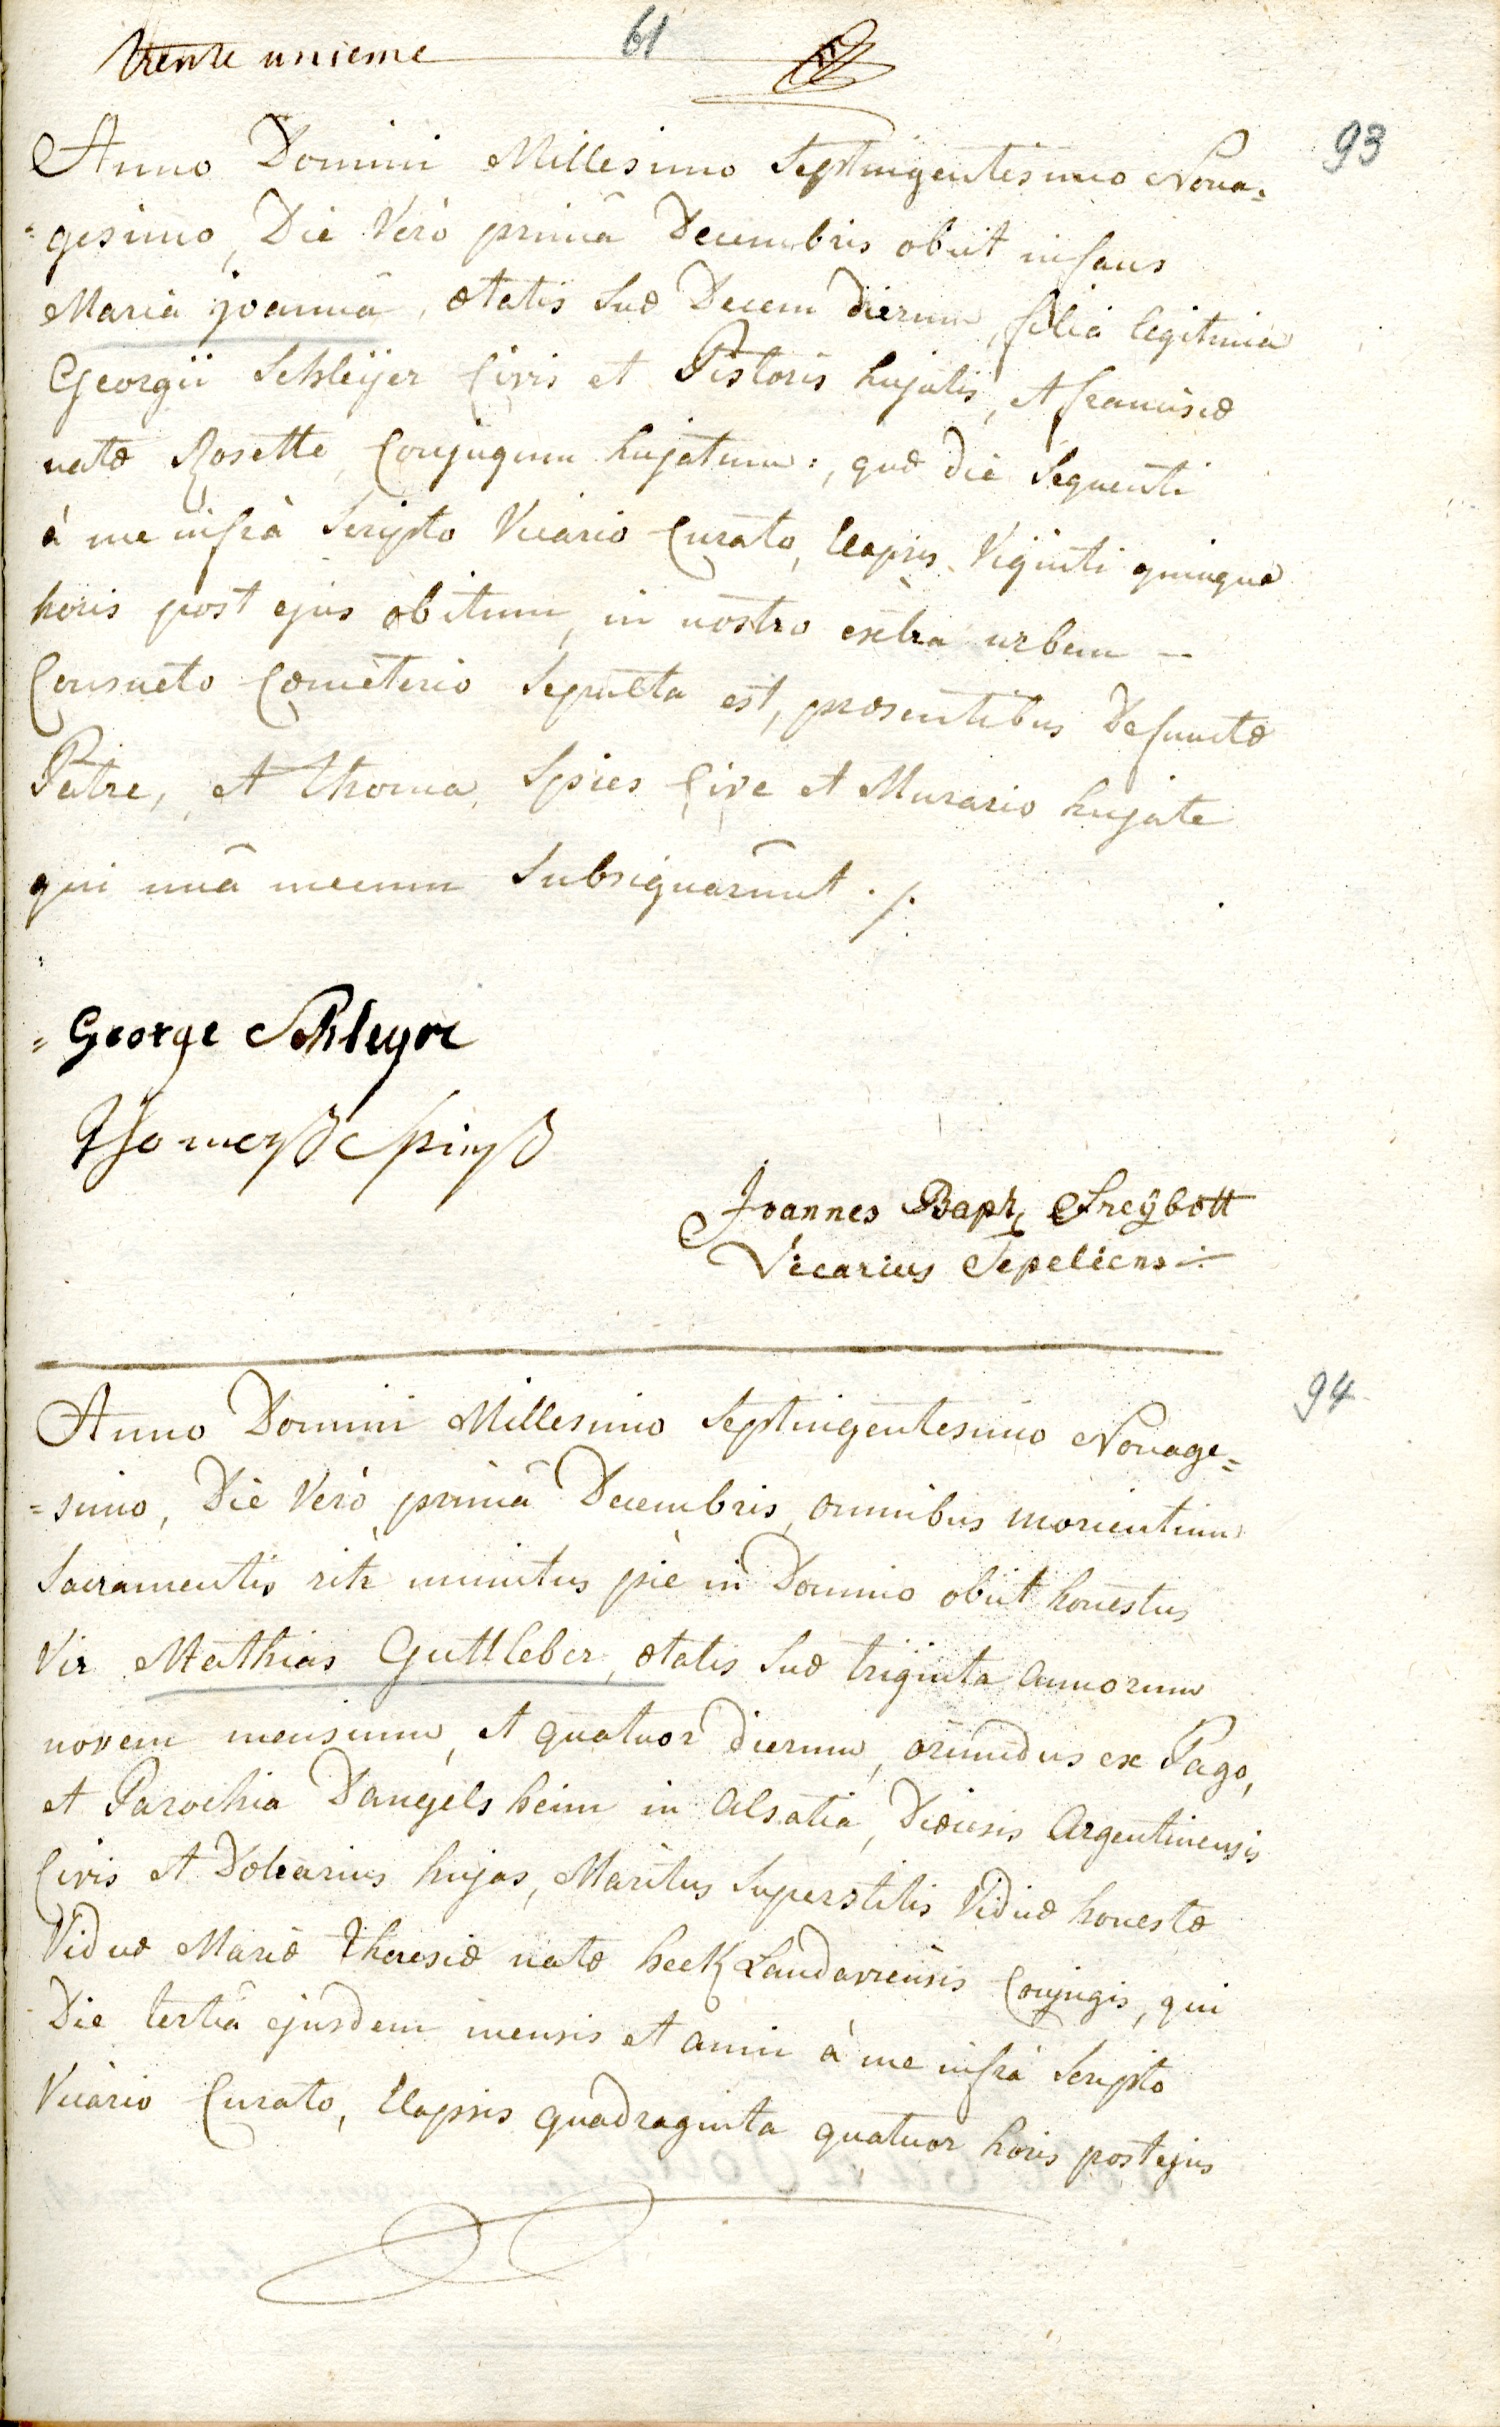 trente unieme
61
93
Anno Domini Millesimo Septingentesimo Nona=
=gesimo, Die Verò primâ Decembris obiit infans
Maria Joanna, ætatis suæ Decem dierum, filia legitima
Georgii Schleÿer Civis et Pistoris hujatis, et franciscæ
natæ Rosette Conjugum hujatum:, quæ die Sequenti
à me infrà Scripto Vicario Curato, Elapsis Viginti quinque
horis post ejus obitum, in nostro extra urbem –
Consueto Cœmeterio Sepulta est, præsentibus Defunctæ
Patre, et Thoma Spies Cive et Murario hujate
qui unâ mecum Subsignarunt ./.
= George Schleyer
Thomeß Spieß
Joannes Bapt Freÿbott
Vicarius Sepeliens
94
Anno Domini Millesimo Septingentesimo Nonage=
=simo, Die Verò primâ Decembris, omnibus morientium
Sacramentis ritè munitus piè in Domino obiit honestus
Vir Mathias Guttleber, ætatis suæ triginta annorum
novem mensium, et quatuor dierum, oriundus ex Pago,
et Parochia Dangelsheim in Alsatia, Diœcesis Argentinensis
Civis et Doliarius hujas, Maritus Superstitis Viduæ honestæ
Viduæ Mariæ Theresiæ natæ heck Landaviensis Conjugis, qui
Die tertiâ ejusdem mensis et anni à me infrà Scripto
Vicario Curato, Elapsis quadraginta quatuor horis post ejus